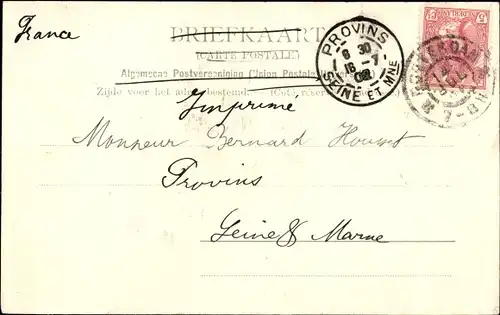 France
BRIEFKAART
(CARTE POSTALE)
Algemeene Postvereeniging (Union Postale
Zijde voor het adres bestemd. (Côté réservé
PROVINS
6 30
16 - 7
02
SEINE ET MNE
ROTTERDAM
Imprimé
Monsieur Bernard
Provins
Seine & Marne